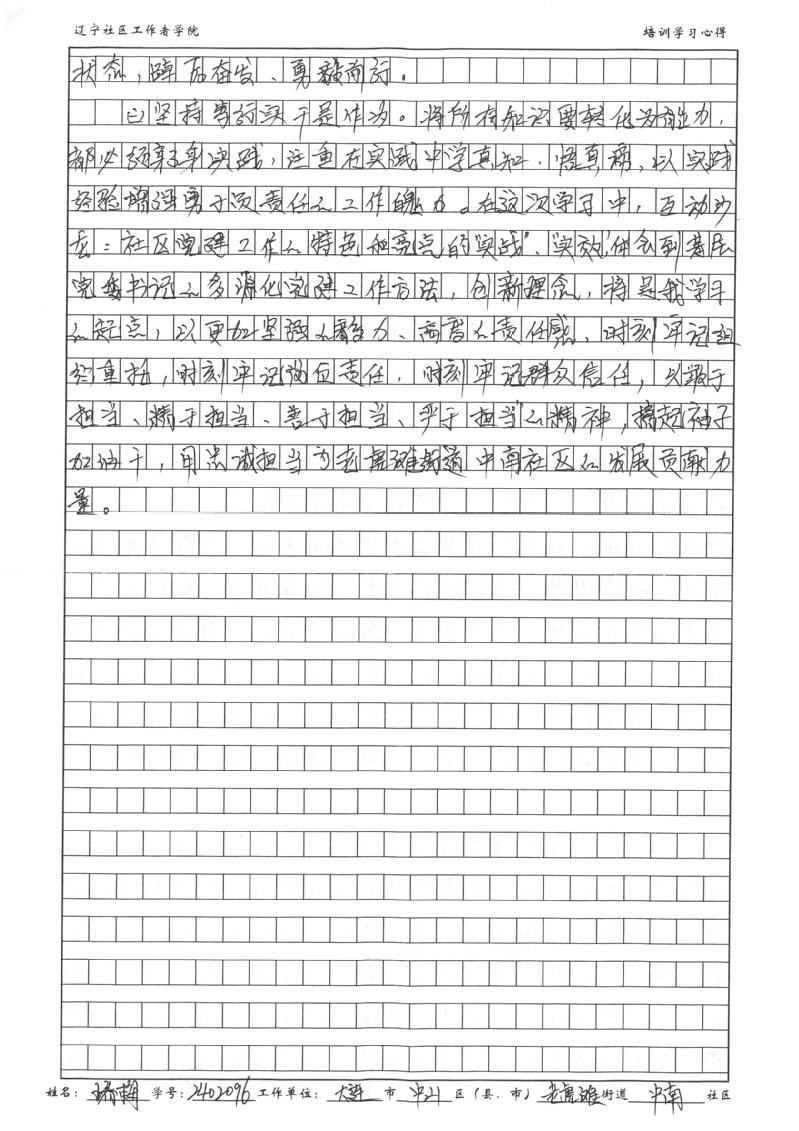 辽宁社区工作者学院 培训学习心得
状态,踔厉奋发、勇毅前行。
㈢坚持笃行实干是作为。将所有知识要转化为能力,
都必须靠亲身实践,注重在实践中学真知、悟真谛,以实践
经验增强勇于负责任的工作魄力。在这次学习中,互动沙
龙:社区党建工作的特色和亮点的"实战"、"实效"体会到基层
党委书记的多源化党建工作方法,创新理念,将是我学习
的起点,以更加坚强的毅力、高度的责任感,时刻牢记组
织重托,时刻牢记岗位责任,时刻牢记群众信任,以敢于
担当、精于担当、善于担当、严于担当的精神,撸起袖子
加油干,用忠诚担当为老虎滩街道中南社区的发展贡献力
量。
姓名: 学号:2402096 工作单位: 大连 市 中山 区(县、市) 老虎滩 街道 中南 社区